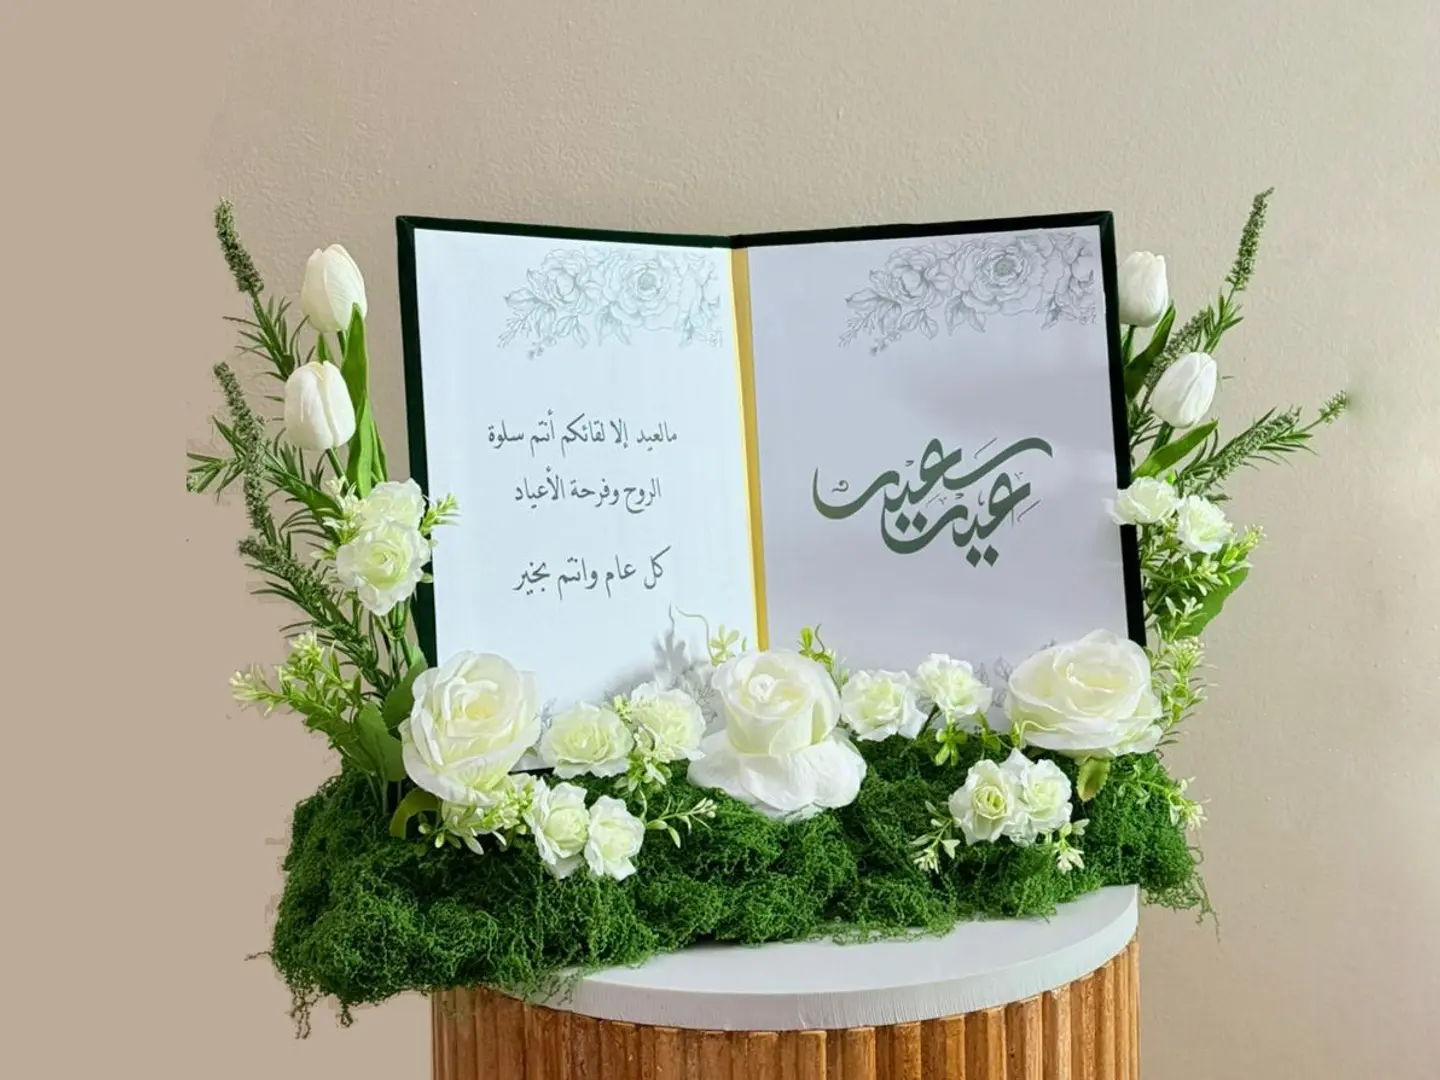 مالعيد إلا لقائكم أنتم سلوة
الروح وفرحة الأعياد
كل عام وانتم بخير
عيد سعيد